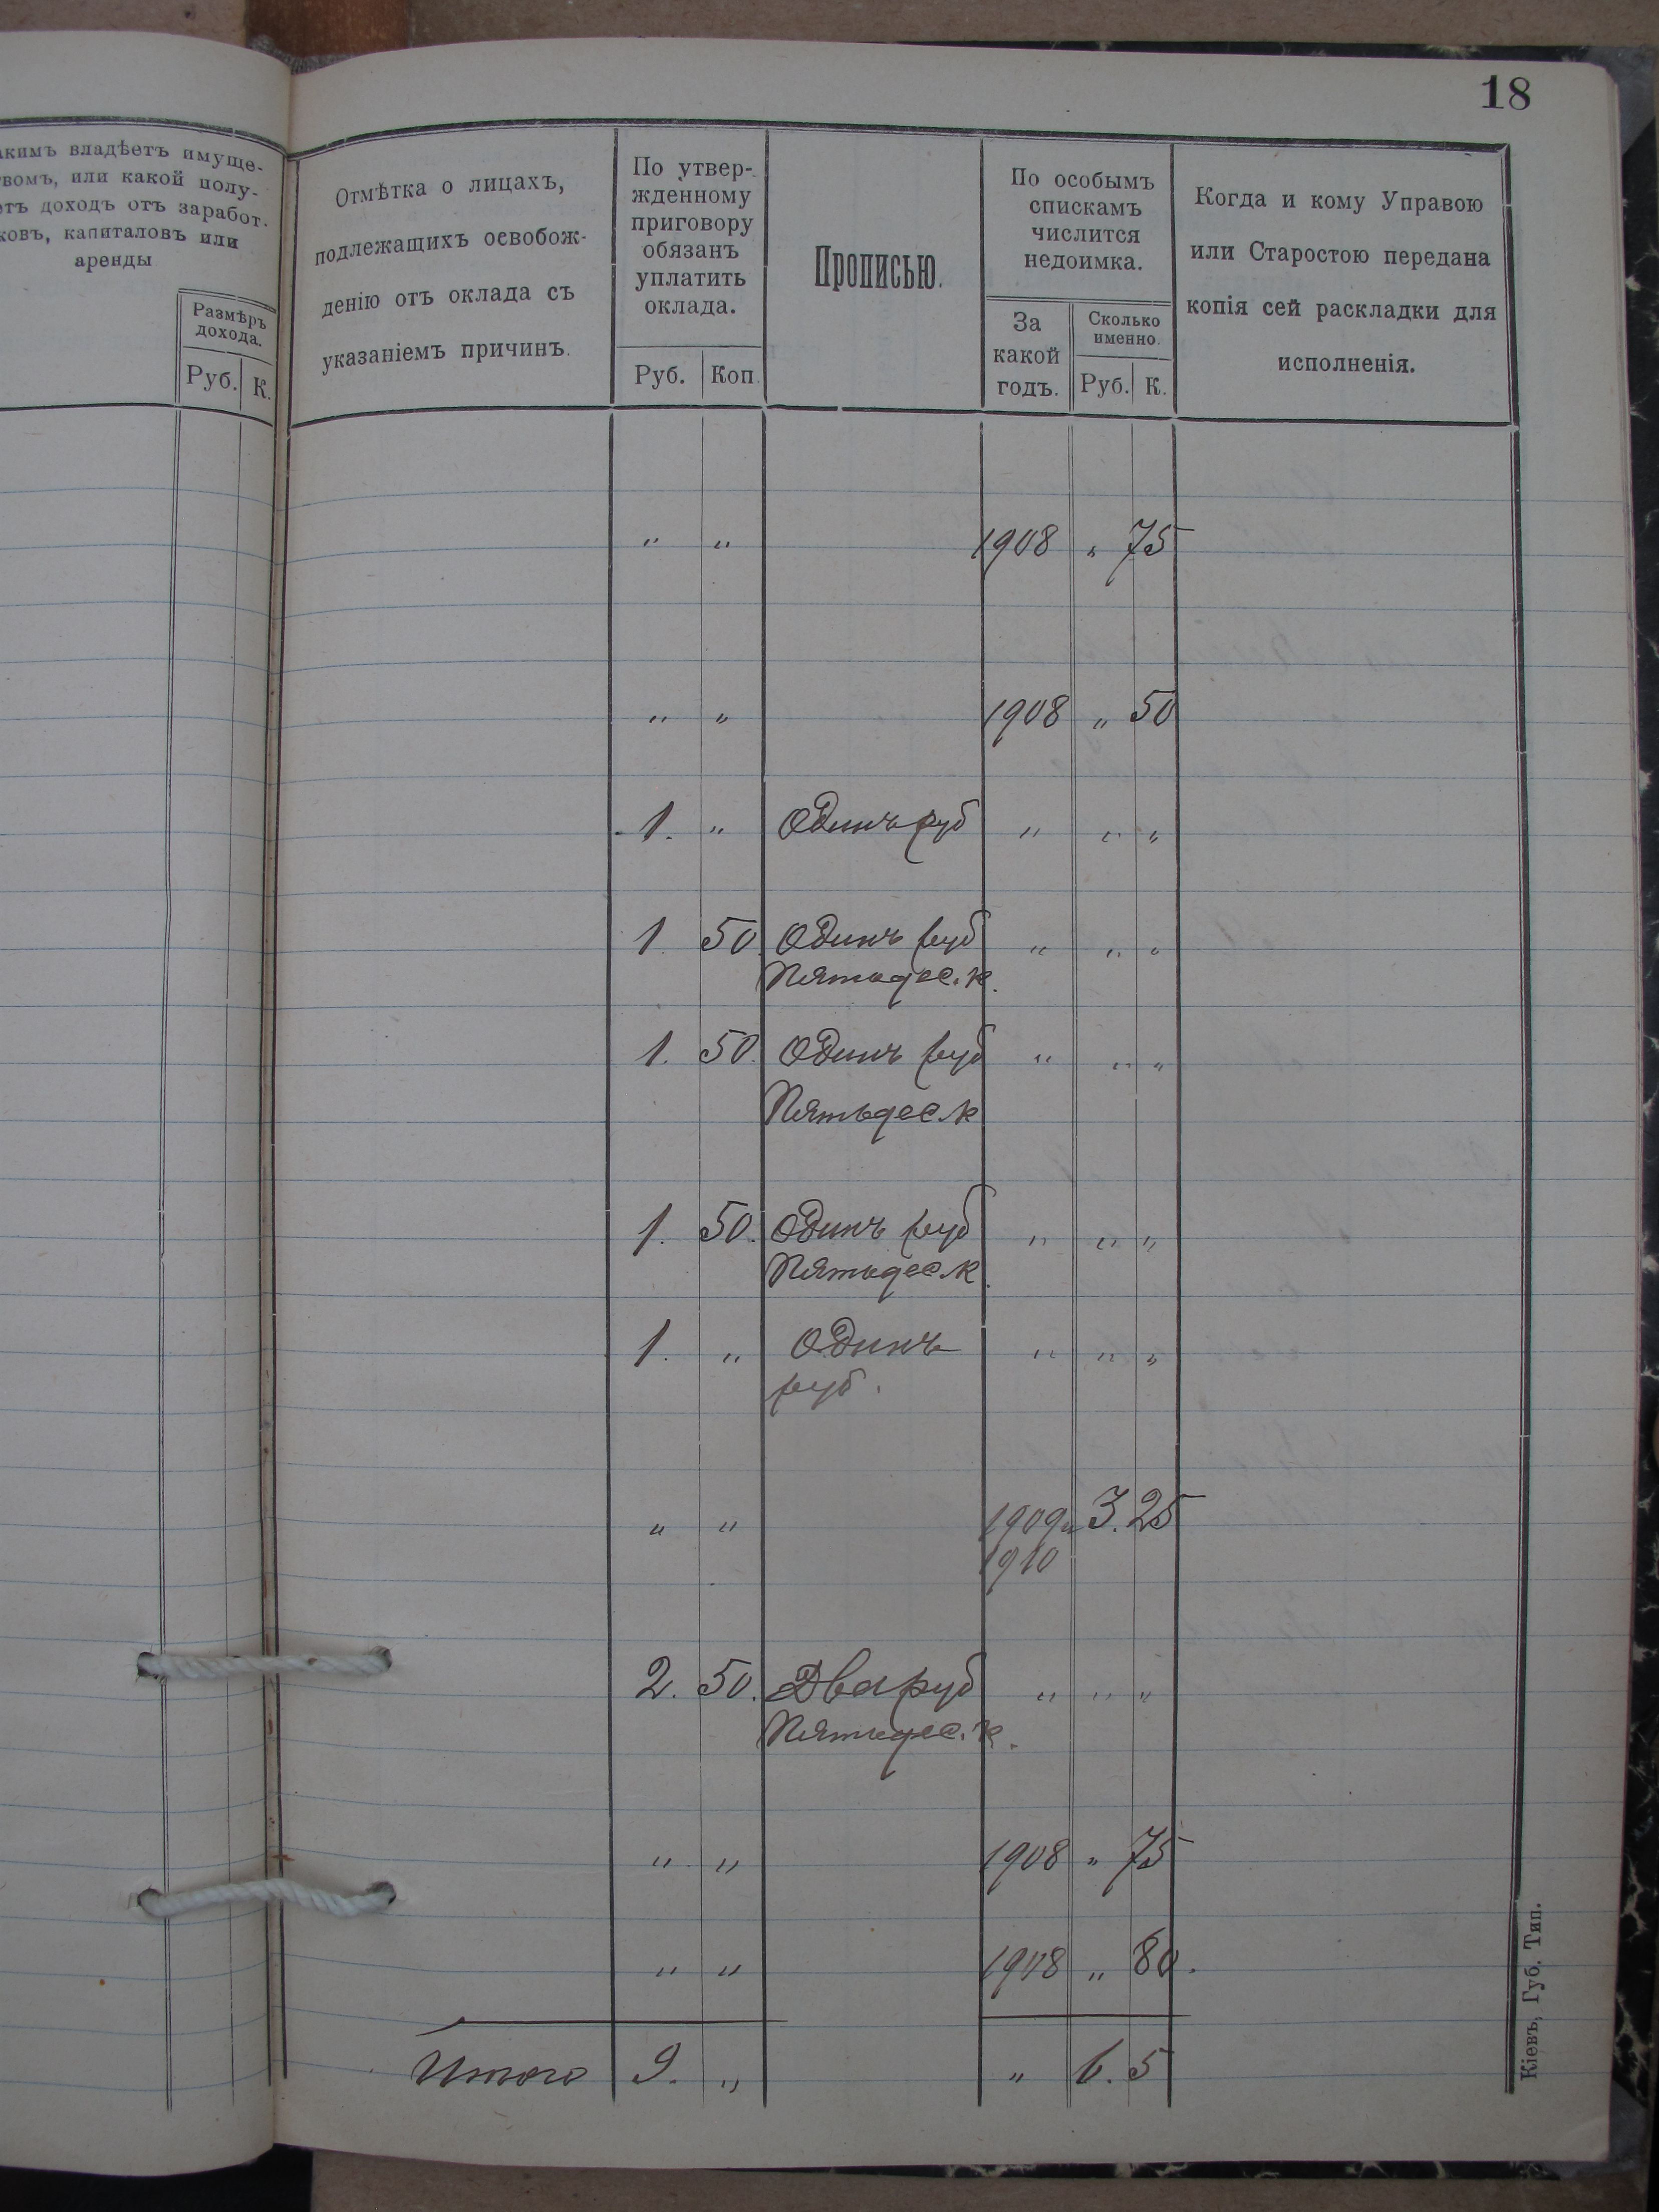 18
владѣетъ имуще-
или какой полу-
доходъ отъ заработ.
капиталовъ или
аренды
Размѣръ
дохода.
Руб. К.
Отмѣтка о лицахъ,
подлежащихъ освобож-
денію отъ оклада съ
указаніемъ причинъ.
По утвер-
жденному
приговору
обязанъ
уплатить
оклада.
Руб. Коп.
Прописью.
По особымъ
спискамъ
числится
недоимка.
За
какой
годъ.
Сколько
именно.
Руб. К.
Когда и кому Управою
или Старостою передана
копія сей раскладки для
исполненія.
" " 1908 " 75
" " 1908 " 50
1. " Одинъ руб " " "
1. 50. Одинъ руб " " "
Пятьдес. к.
1. 50. Одинъ руб " " "
Пятьдес. к
1. 50. Одинъ руб " " "
Пятьдес. к.
1. " Одинъ " " "
руб.
" " 1909 и 3. 25
1910
2. 50. Два руб " " "
Пятьдес. к.
" " 1908 " 75
" " 1908 " 80.
Итого 9. " " 6. 5
Кіевъ, Губ. Тип.